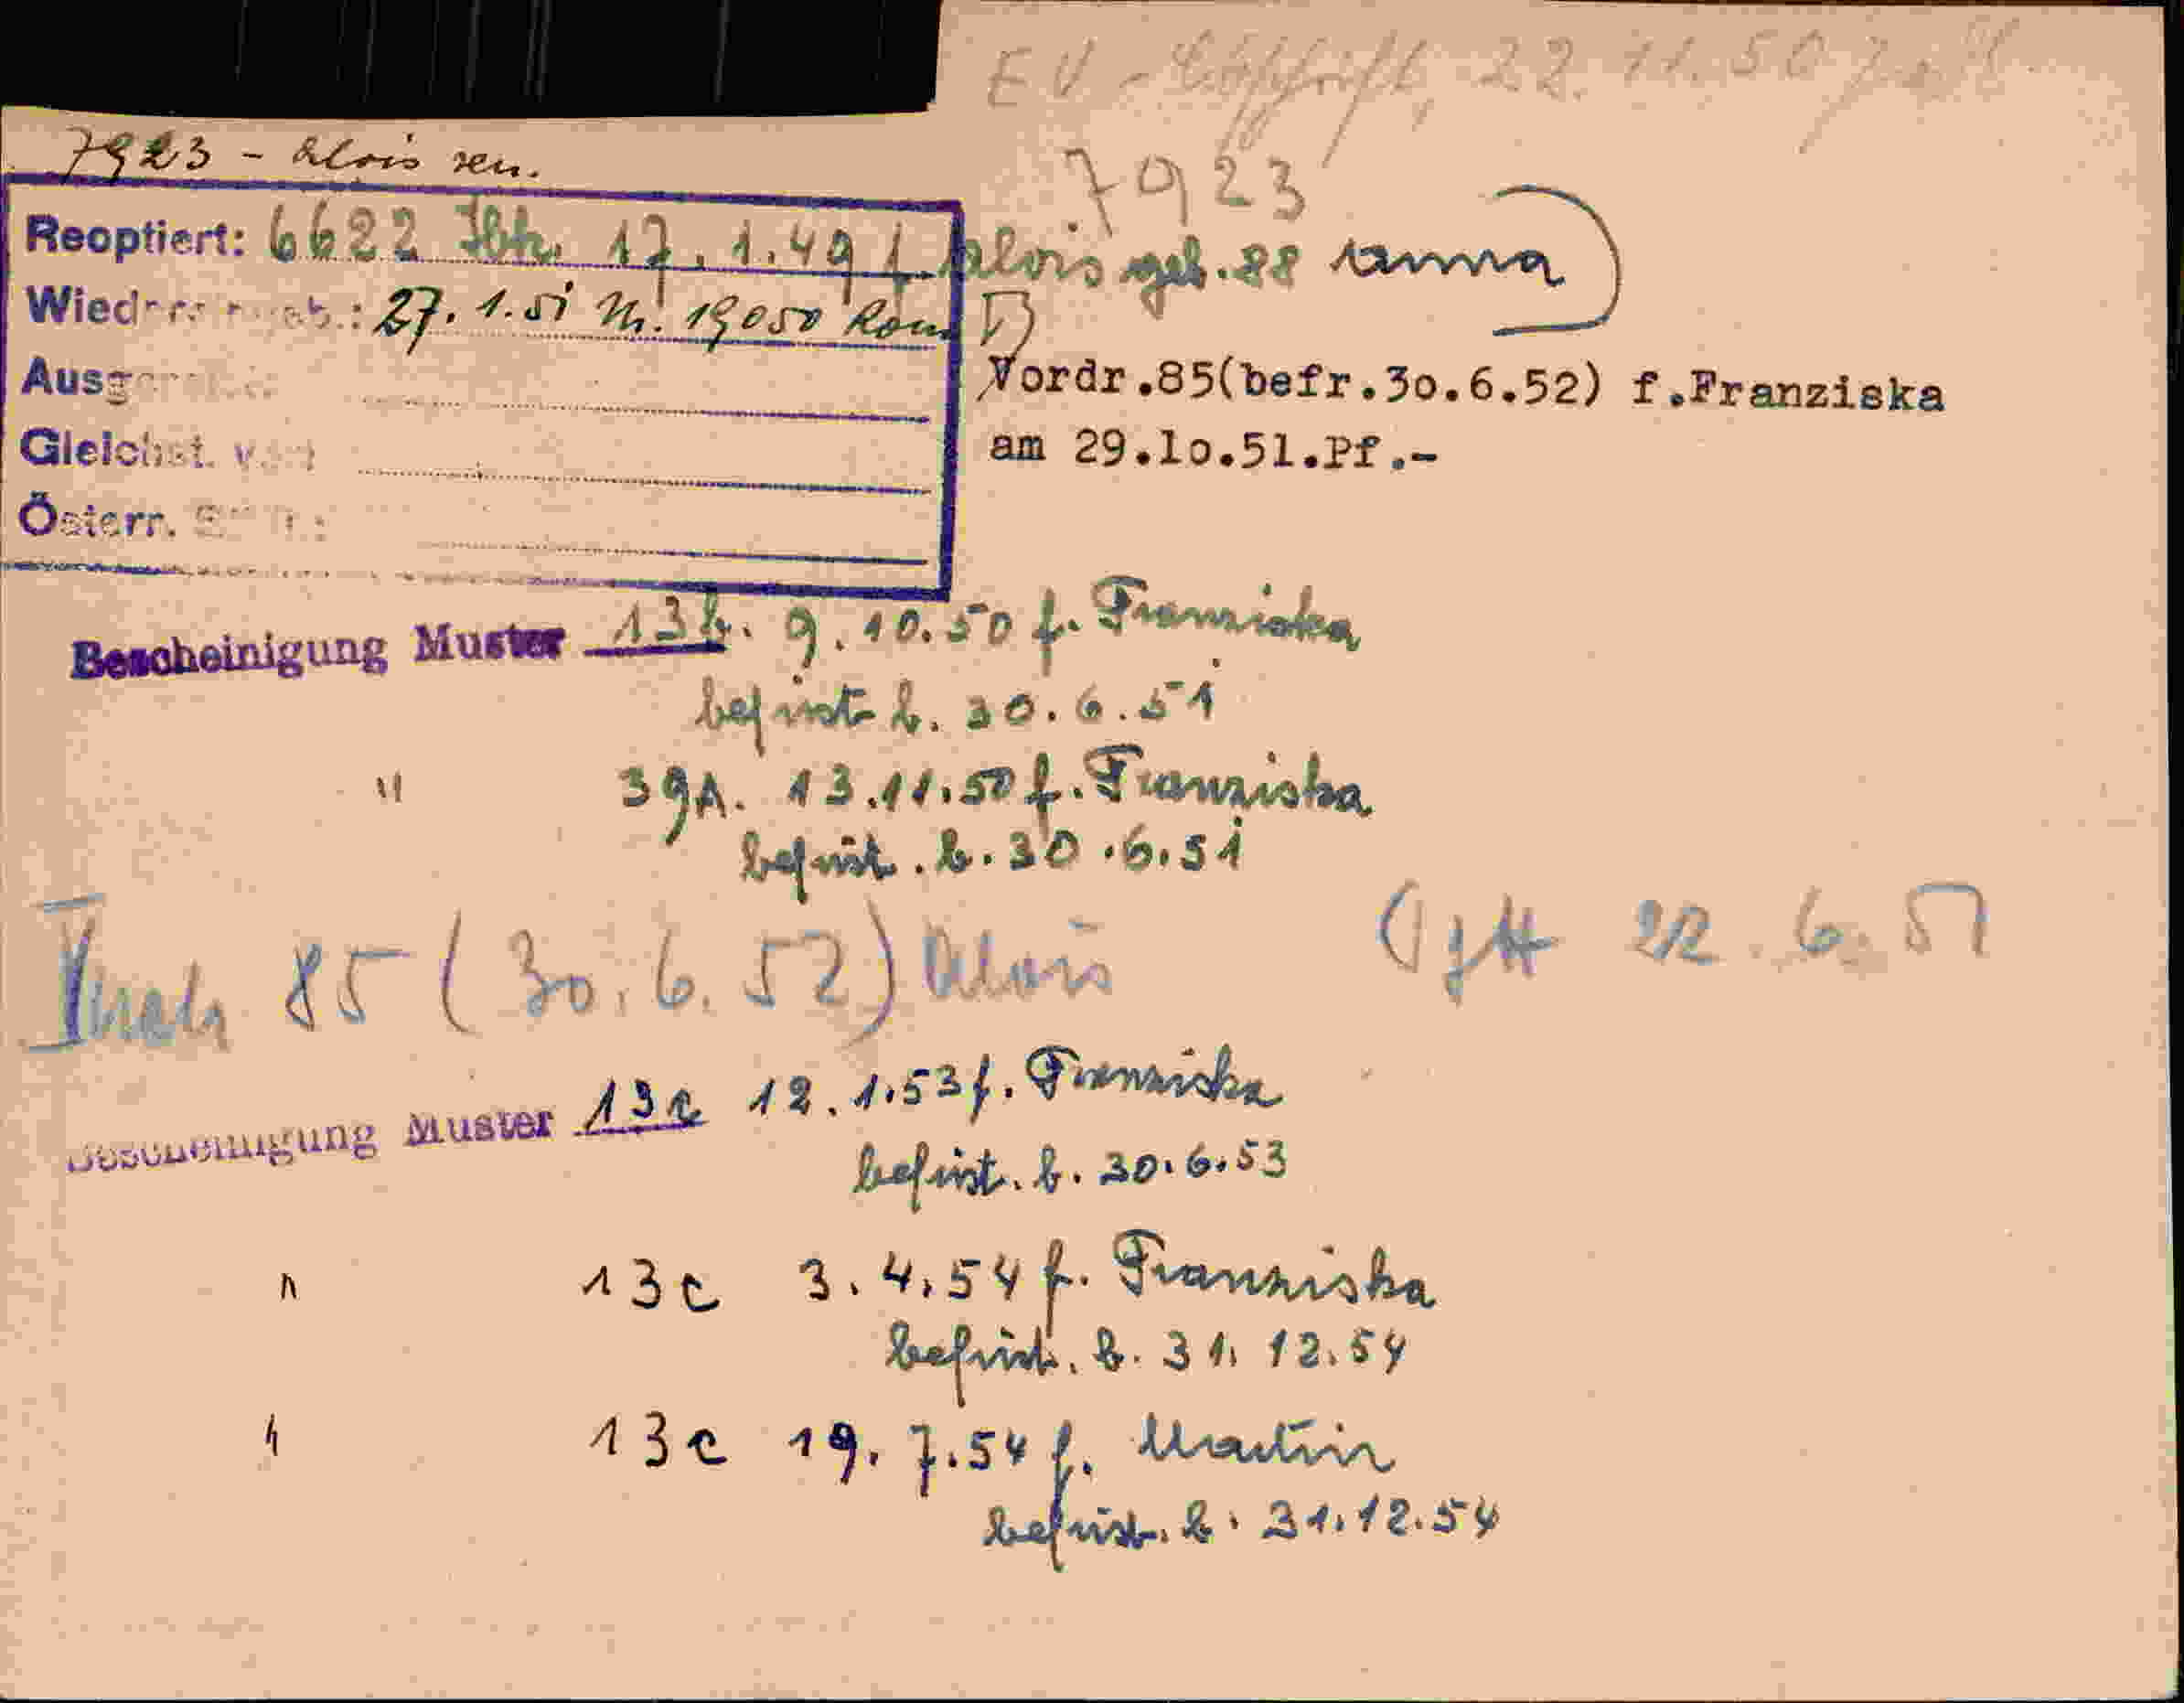 EV - 22.11.50
7923 - Alois sen.
7923
Reoptiert: 6622 Ibk. 17.1.49 f. Alois geb. 88 Anna
27.1.51 Nr. 19050 Rom
Vordr.85(befr.30.6.52) f.Franziska
am 29.10.51.Pf.-
Gleichst. von
Österr.
Bescheinigung Muster 13b. 9.10.50 f. Franziska
befrist b. 30.6.51
" 39A. 13.11.50 f. Franziska
befrist. b. 30.6.51
85 (30.6.52) Alois 22.6.51
Bescheinigung Muster 13c 12.1.53 f. Franziska
befrist. b. 30.6.53
" 13c 3.4.54 f. Franziska
befrist. b. 31.12.54
" 13c 19.7.54 f. Martin
befrist. b. 31.12.54